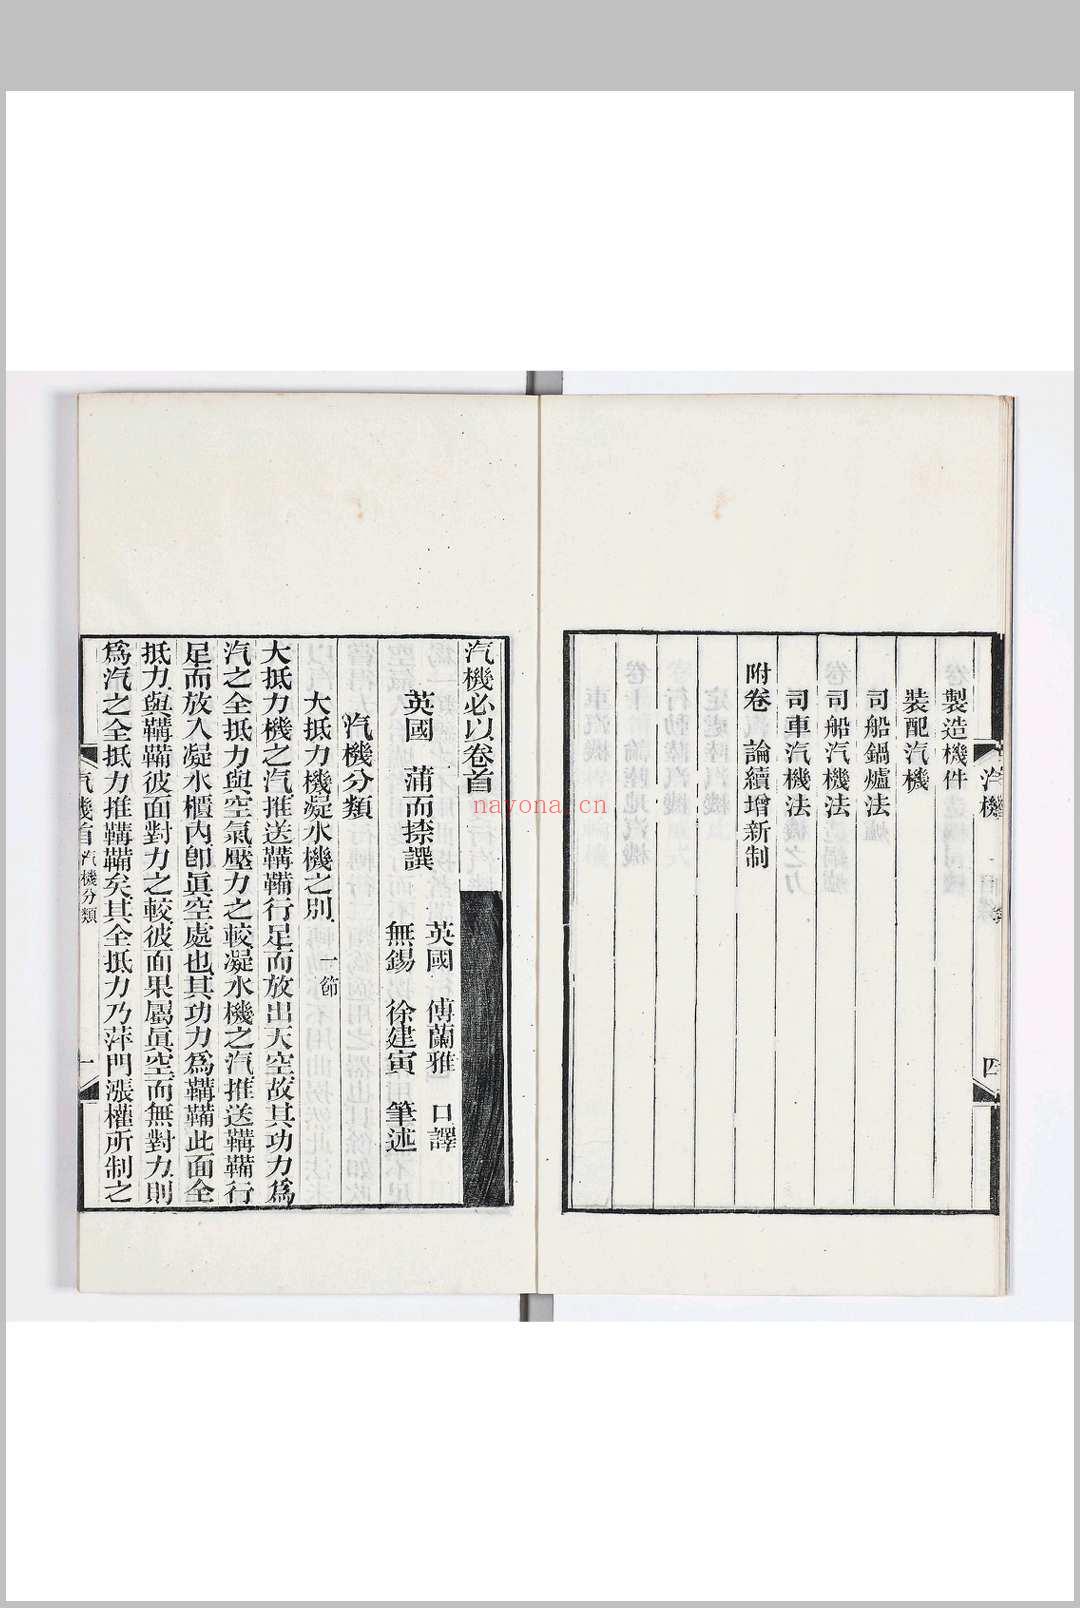 製造機件
裝配汽機
司船鍋爐法
司船汽機法
司車汽機法
附卷 論續增新制
汽機
四
汽機必以卷首
英國 蒲而捺譔
英國 傅蘭雅 口譯
無錫 徐建寅 筆述
汽機分類
大抵力機凝水機之別 一節
大抵力機之汽推送鞲鞴行足而放出天空故其功力為
汽之全抵力與空氣壓力之較凝水機之汽推送鞲鞴行
足而放入凝水櫃內卽眞空處也其功力為鞲鞴此面全
抵力與鞲鞴彼面對力之較彼面果屬眞空而無對力則
為汽之全抵力推鞲鞴矣其全抵力乃萍門漲權所制之
汽機首 汽機分類
一
nayona.cn